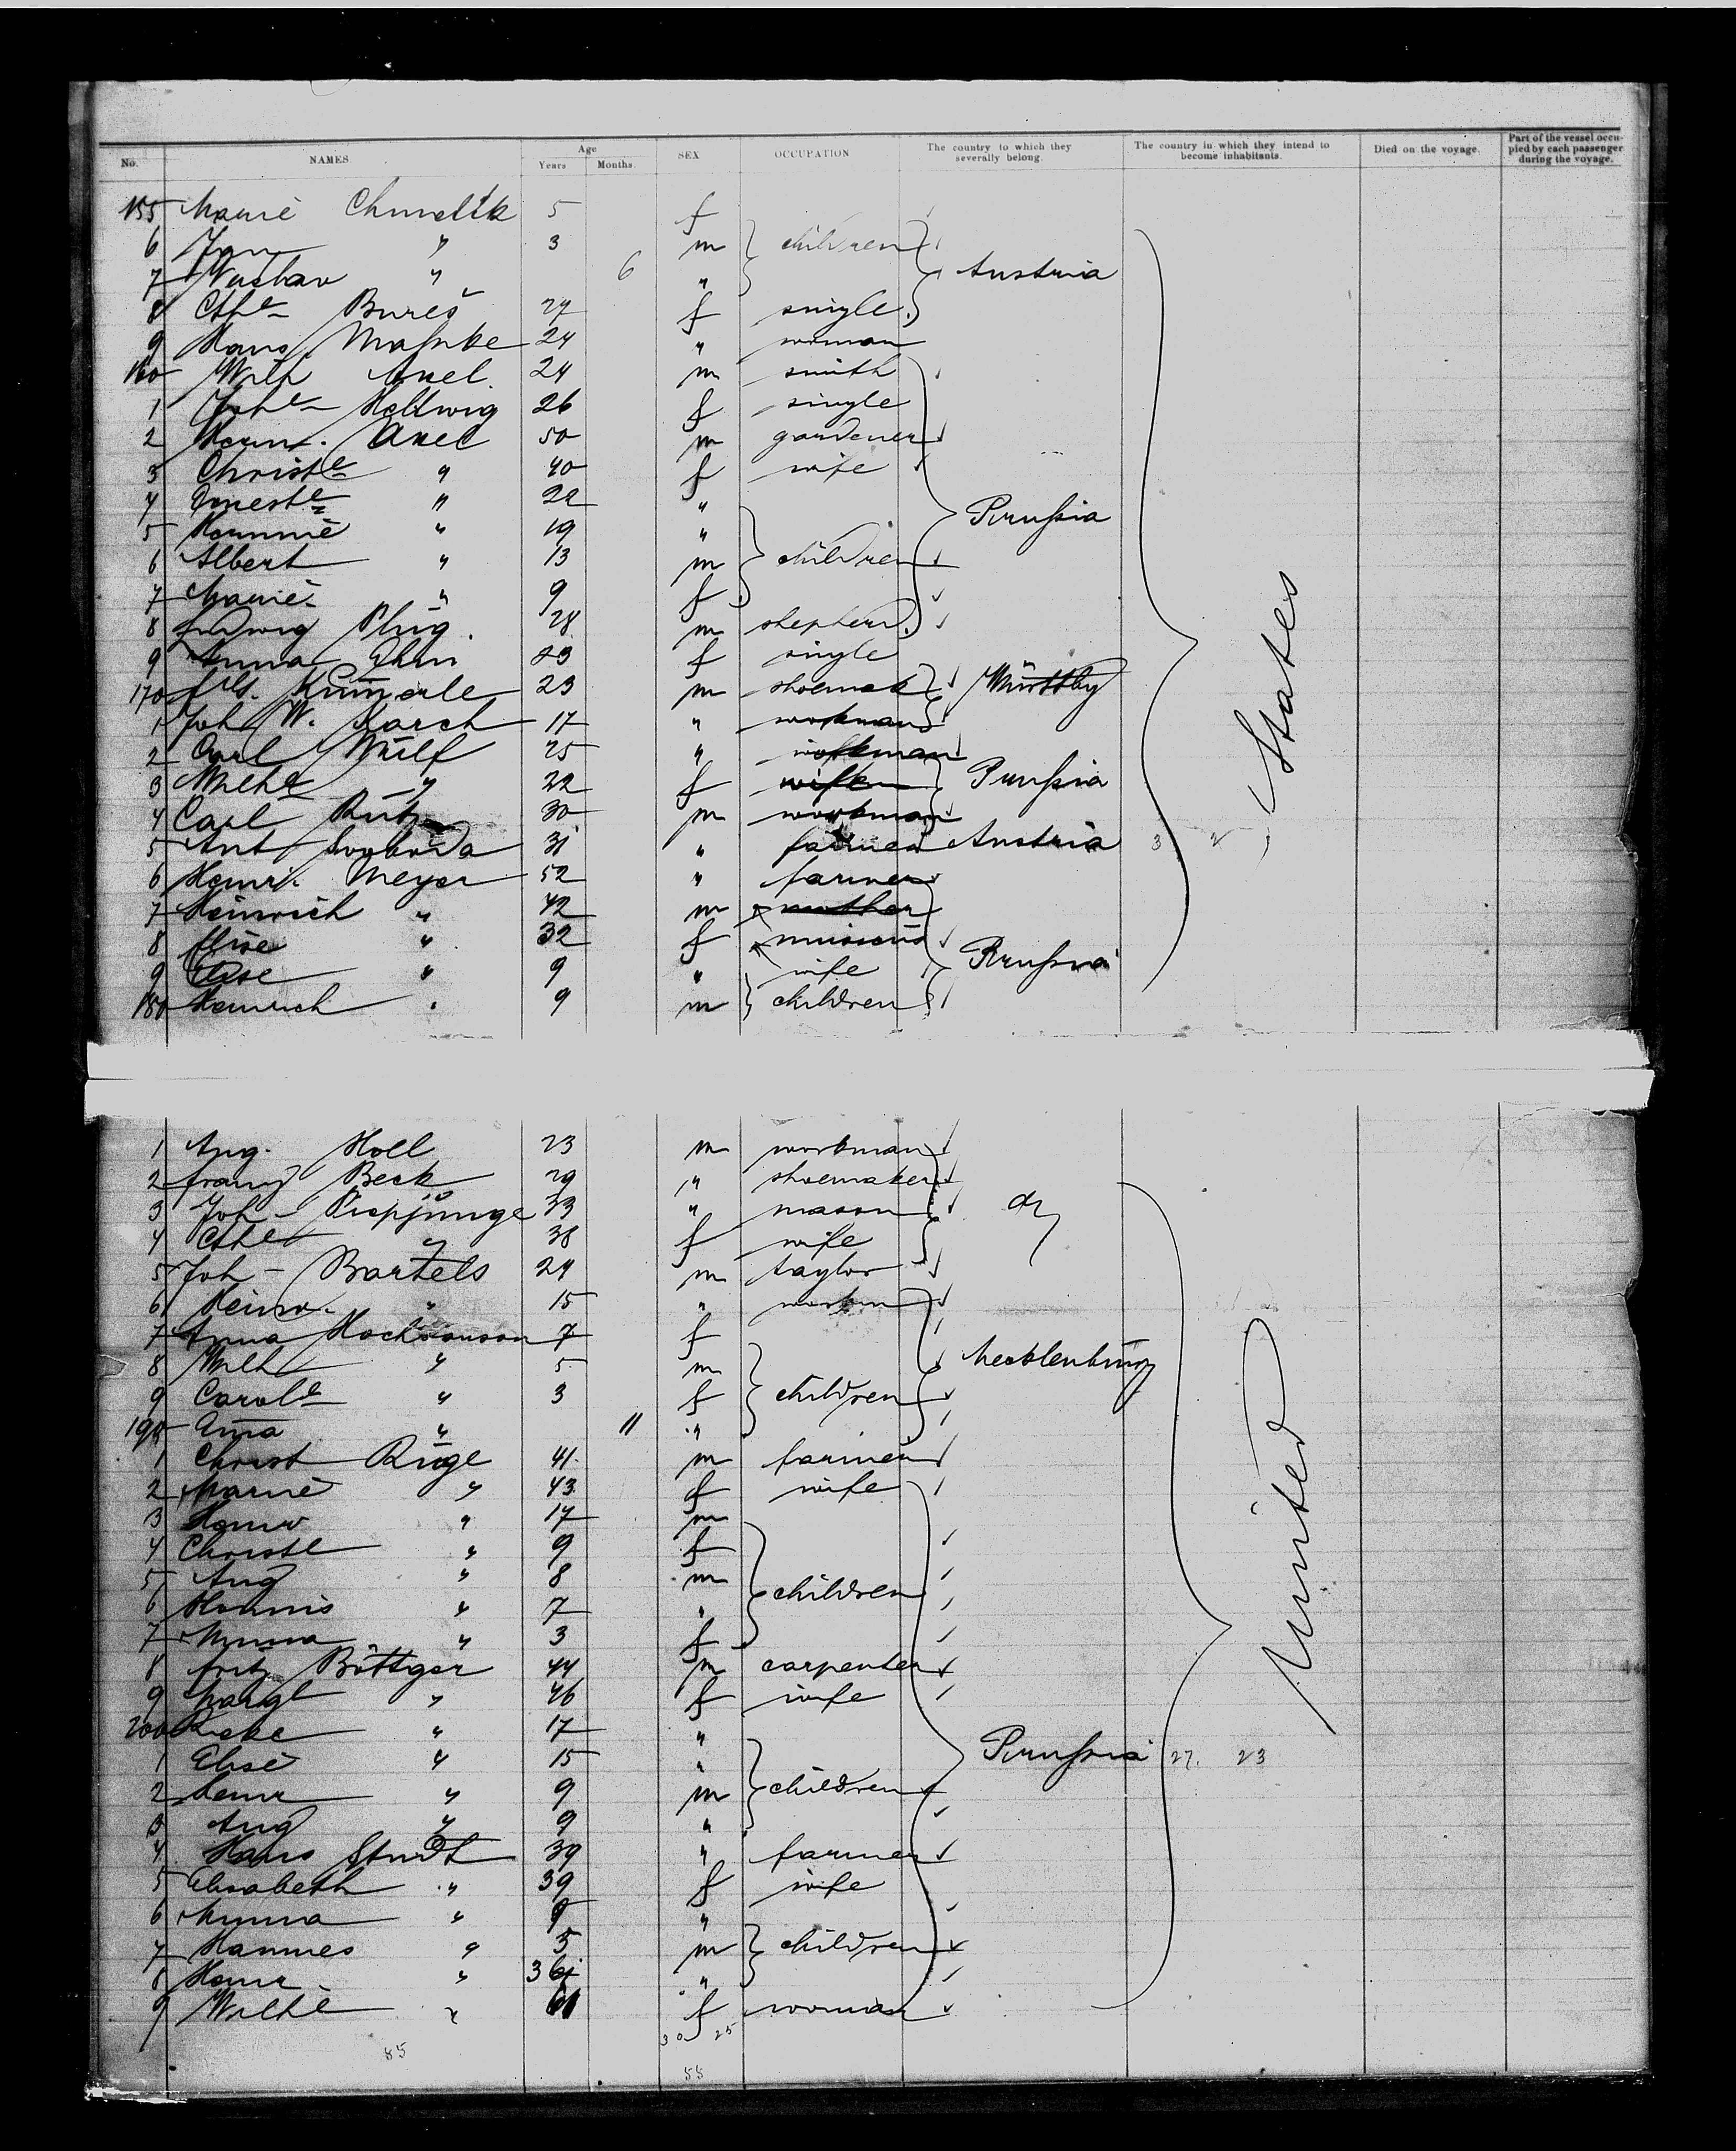 No. NAMES Age Years Months. SEX OCCUPATION The country to which they severally belong. The country in which they intend to become inhabitants. Died on the voyage. Part of the vessel occupied by each passenger during the voyage.
155 Marie Chmelik 5 f
6 Jan " 3 m children
7 " 6 " Austria
8 Cthe Bureš 27 f single
9 24 " woman
160 Wilh 24 m smith
1 Johe Hellwig 26 f single
2 Herm. 50 m gardener
3 Christe " 40 f wife
4 Erneste " 22 "
5 " 19 " Prußia
6 Albert " 13 m children
7 Marie " 9 f
8 Ludwig Plüg. 28 m shepherd
9 Anna 23 f single
170 23 m shoemak Württbg
1 Joh W. Karch 17 " workman
2 Carl Wülf 25 " workman
3 Wilhe " 22 f wife Prußia
4 Carl 30 m workman
5 Ant Svoboda 31 " farmer Austria 3 2
6 Henri. Meyer 52 " farmer
7 Heinrich " 42 m mother
8 Elise " 32 f
9 Else " 9 " wife Prußia
180 Heinrich " 9 m children
States
1 Aug. Holl 23 m workman
2 Franz Beck 29 " shoemaker
3 Joh 33 " mason
4 Cthe " 38 f wife
5 Joh Bartels 24 m taylor
6 Heinr. " 15 " workm
7 Anna 7 f
8 Wilh " 5 m Mecklenburg
9 Carole " 3 f children
190 Ema " 11 "
1 Christ Rüge 41 m farmer
2 Marie " 43 f wife
3 Henr " 17 m
4 Christe " 9 f
5 Aug " 8 m children
6 " 7 "
7 Minna " 3 f
8 Fritz Böttger 44 m carpenter
9 Margt " 46 f wife
200 " 17 "
1 Elise " 15 " Prußia 27. 23
2 Henr " 9 m children
3 Aug " 9 "
4 Hans Studt 39 " farmer
5 Elisabeth " 39 f wife
6 Minna " 9 "
7 Hannes " 5 m children
8 Henr. " 3 "
9 Wilhe " 61 f woman
United
30 25
85
55